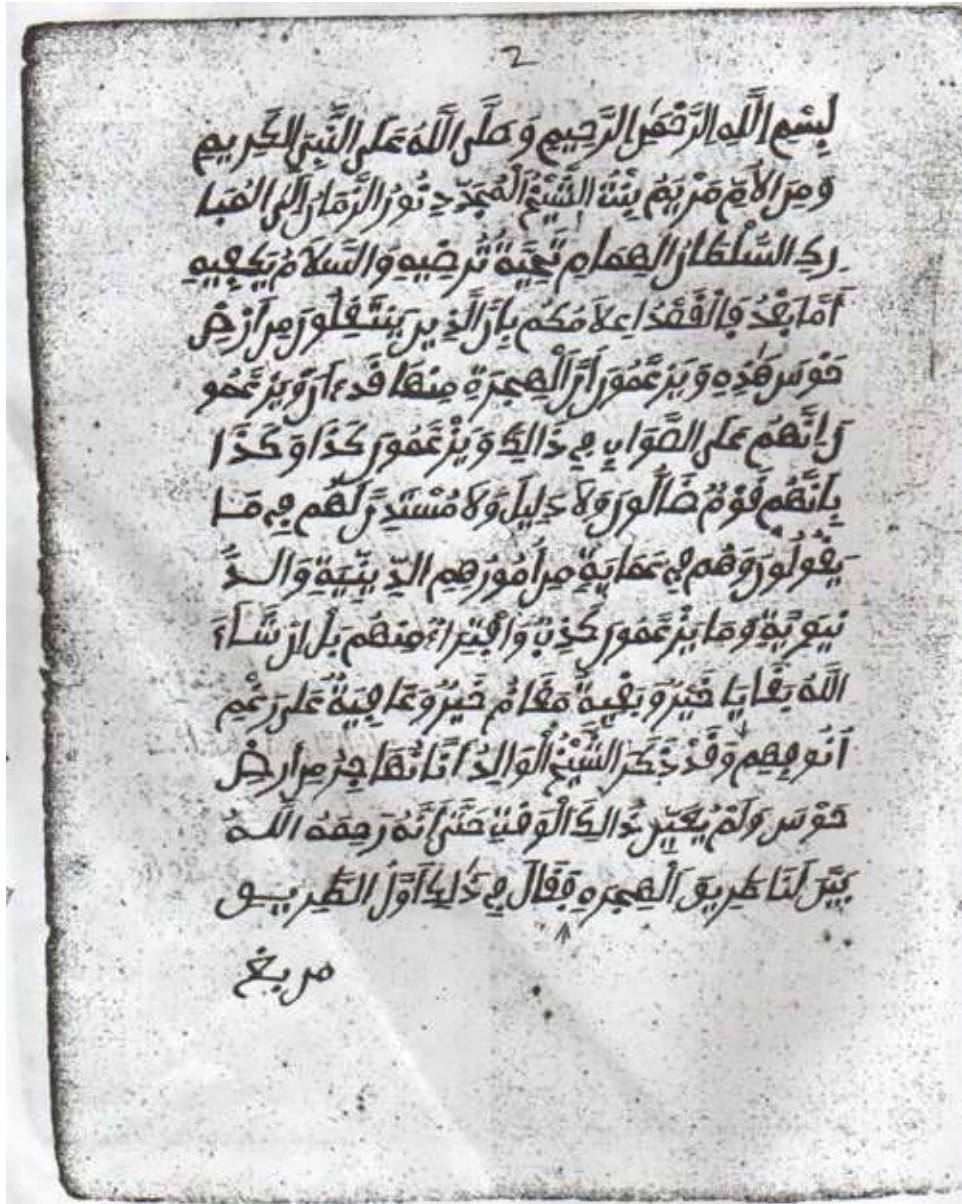 2
بِسْمِ اللَّهِ الرَّحْمَٰنِ الرَّحِيمِ وَصَلَّى اللَّهُ عَلَى النَّبِيِّ الْكَرِيمِ
وَمِنَ الْأُمِّ مَرْيَمَ بِنْتُ الشَّيْخِ الْمُجَدِّدِ نُورُ الزَّمَانِ إِلَى الْمُبَا
رِكِ السُّلْطَانُ الْهِمَامِ تَحِيَّةً تُرْضِيهِ وَالسَّلَامُ يَكْفِيهِ
أَمَّا بَعْدُ فَالْقَصْدُ اعْلَامُكُمْ بِأَنَّ الَّذِينَ يَنْتَقِلُونَ مِنْ أَرْضِ
حَوْسَ هَٰذِهِ وَيَزْعَمُونَ أَنَّ الْهِجْرَةَ مِنْهَا قَدْ ءَانَ وَيَزْعَمُو
نَ إِنَّهُمْ عَلَى الصَّوَابِ فِي ذَالِكَ وَيَزْعَمُونَ كَذَا وَكَذَا
بِأَنَّهُمْ قَوْمٌ ضَآلُّونَ وَلَا دَلِيلَ وَلَا مُسْتَدِلَّ لَهُمْ فِي مَا
يَقُولُونَ وَهُمْ فِي عَمَايَةٍ مِنْ أُمُورِهِمِ الدِّينِيَّةِ وَالدُّ
نْيَوِيَّةِ وَمَا يَزْعَمُونَ كَذِبٌ وَافْتِرَاءٌ مِنْهُمْ بَلْ إِنْ شَآءَ
اللَّهُ بَقَايَا خَيْرٌ وَبَقْيَةٌ مَقَامُ خَيْرٌ وَعَافِيَةٌ عَلَى رَغْمِ
أَنُوفِهِمْ وَقَدْ ذَكَرَ الشَّيْخُ الْوَالِدُ أَنَّا نُهَاجِرُ مِنْ أَرْضِ
حَوْسَ وَلَمْ يُعَيِّنْ ذَالِكَ الْوَقْتَ حَتَّى أَنَّهُ رَحِمَهُ اللَّهُ
بَيَّنَ لَنَا طَرِيقَ الْهِجْرَهِ فَقَالَ فِي ذَٰلِكَ أَوَّلُ الطَّرِيـــق
من يغ